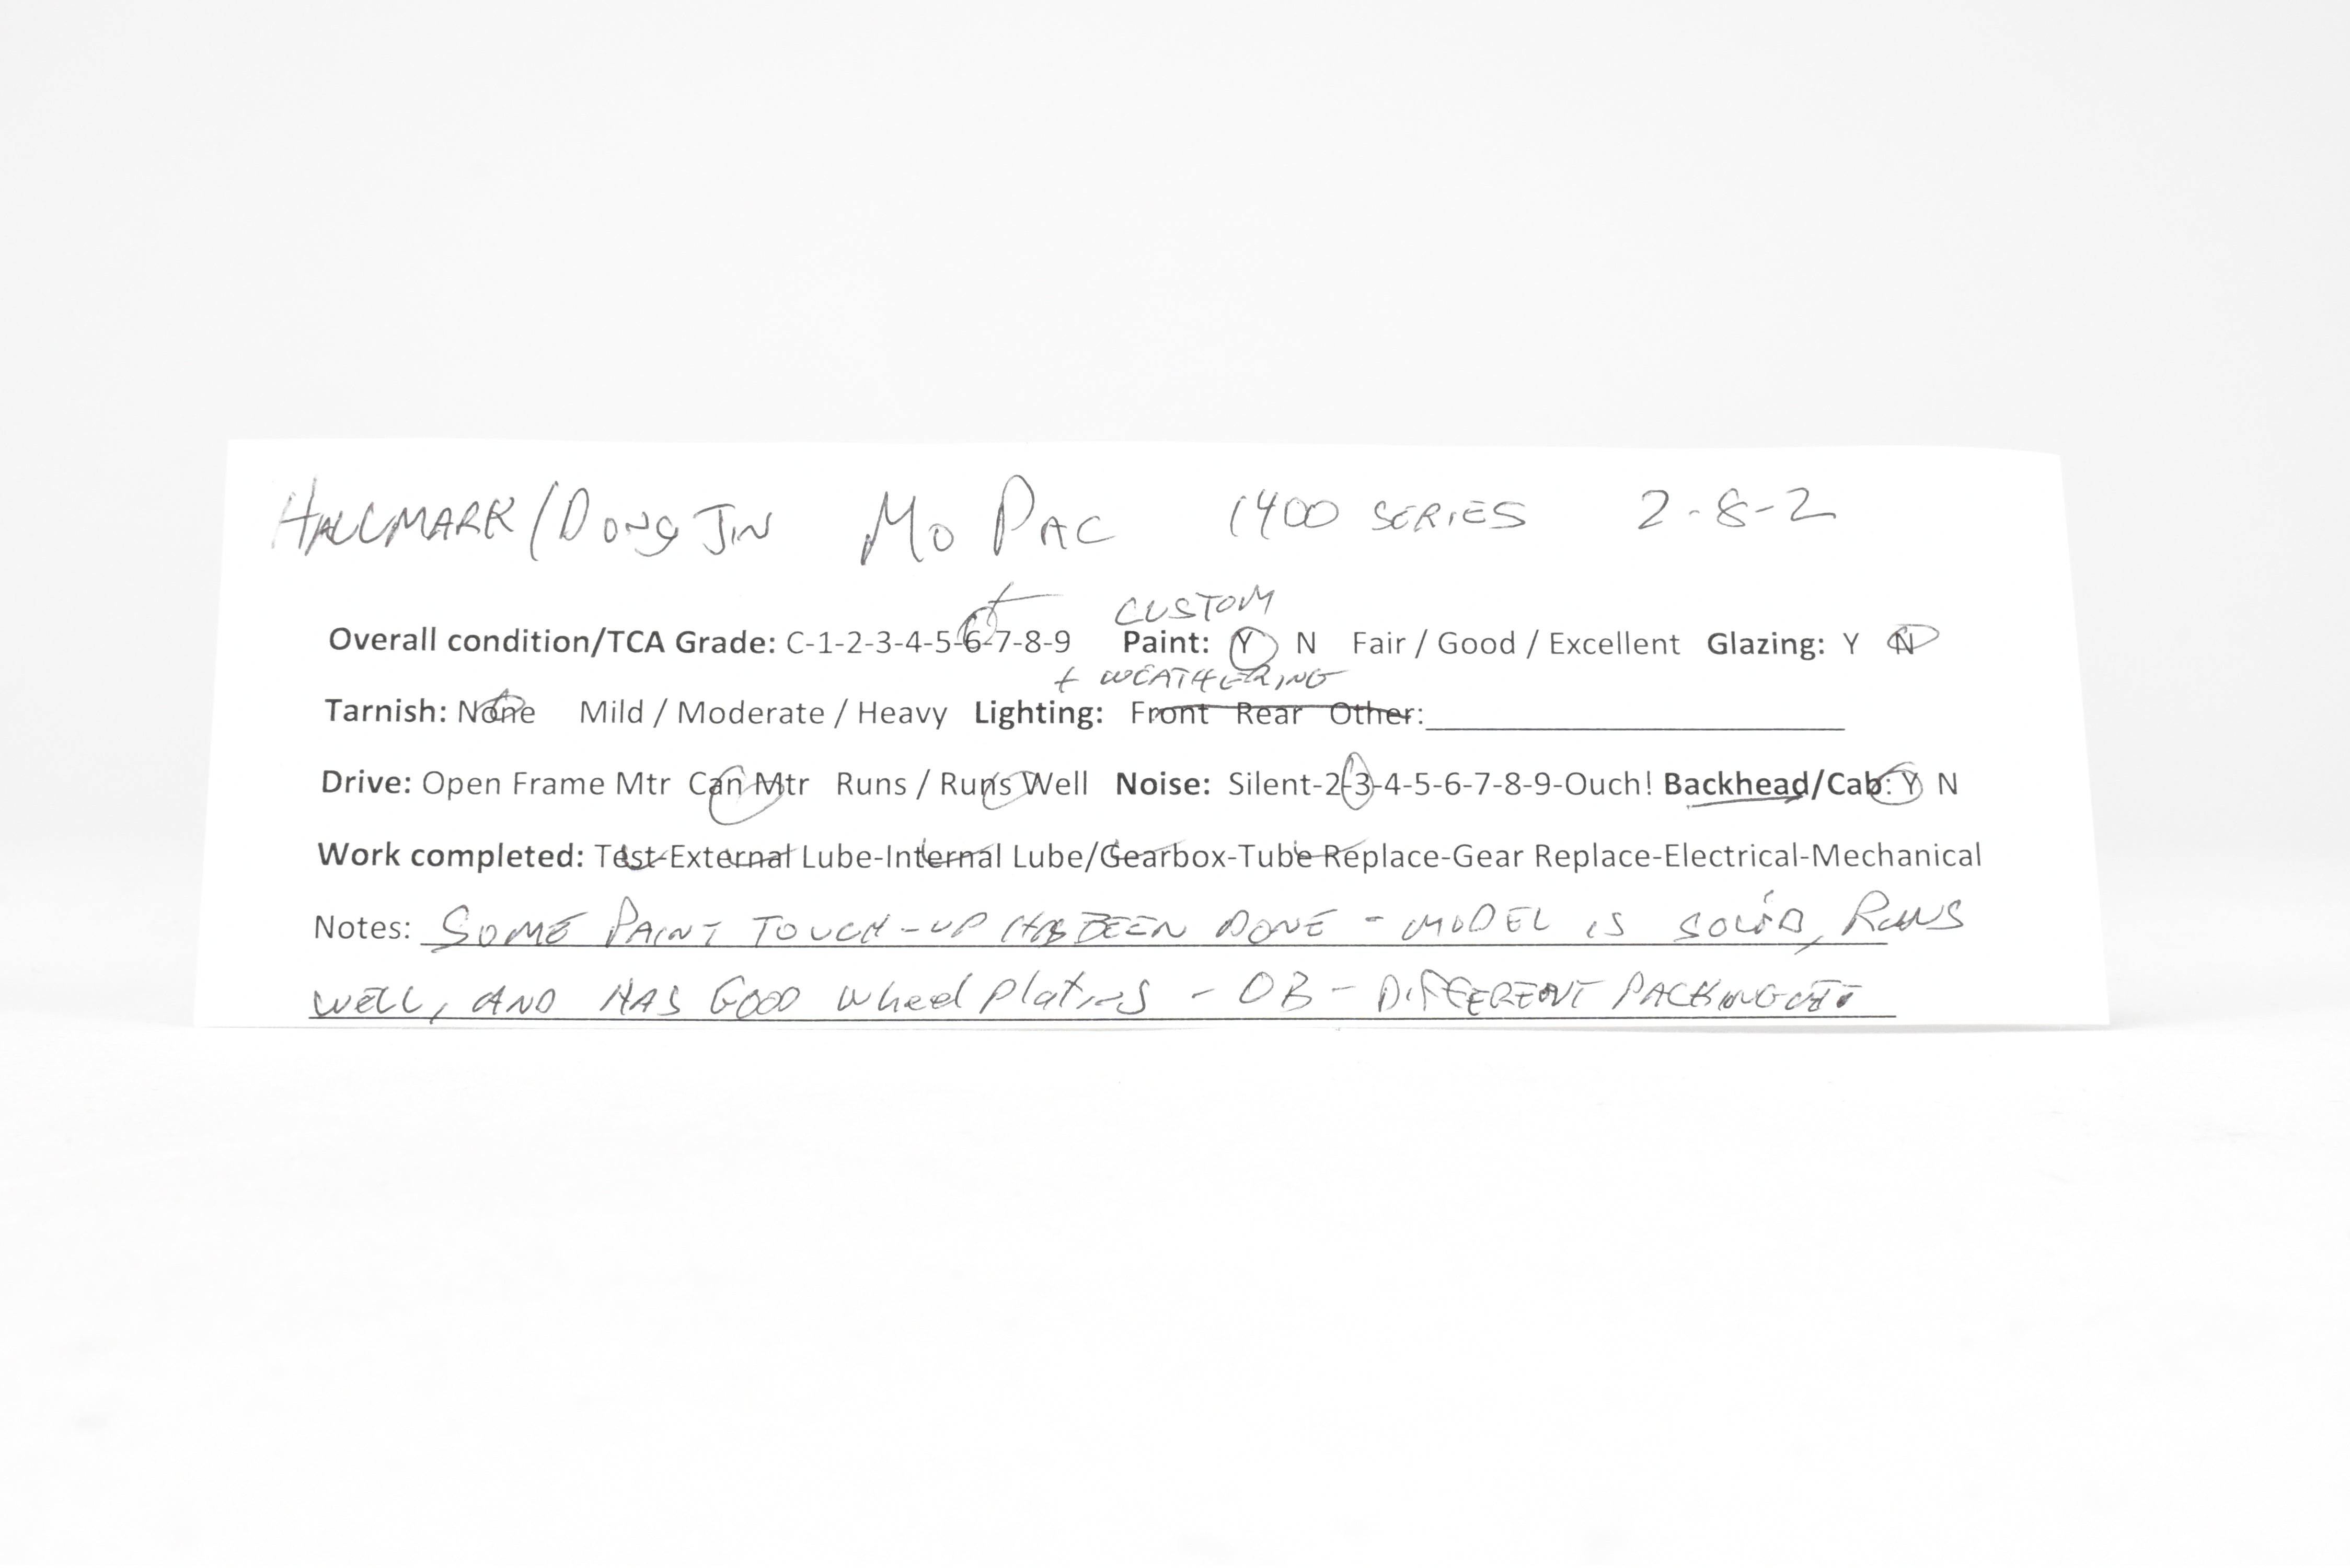 HALLMARK/DONG JIN MO PAC 1400 SERIES 2-8-2
CUSTOM
Overall condition/TCA Grade: C-1-2-3-4-5-6-7-8-9 Paint: Y N Fair / Good / Excellent Glazing: Y N
+ WEATHERING
Tarnish: None Mild / Moderate / Heavy Lighting: Front Rear Other:
Drive: Open Frame Mtr Can Mtr Runs / Runs Well Noise: Silent-2-3-4-5-6-7-8-9-Ouch! Backhead/Cab: Y N
Work completed: Test-External Lube-Internal Lube/Gearbox-Tube Replace-Gear Replace-Electrical-Mechanical
Notes: SOME PAINT TOUCH-UP HAS BEEN DONE - MODEL IS SOLID, RUNS
WELL, AND HAS GOOD wheel plating - OB - DIFFERENT PACKING